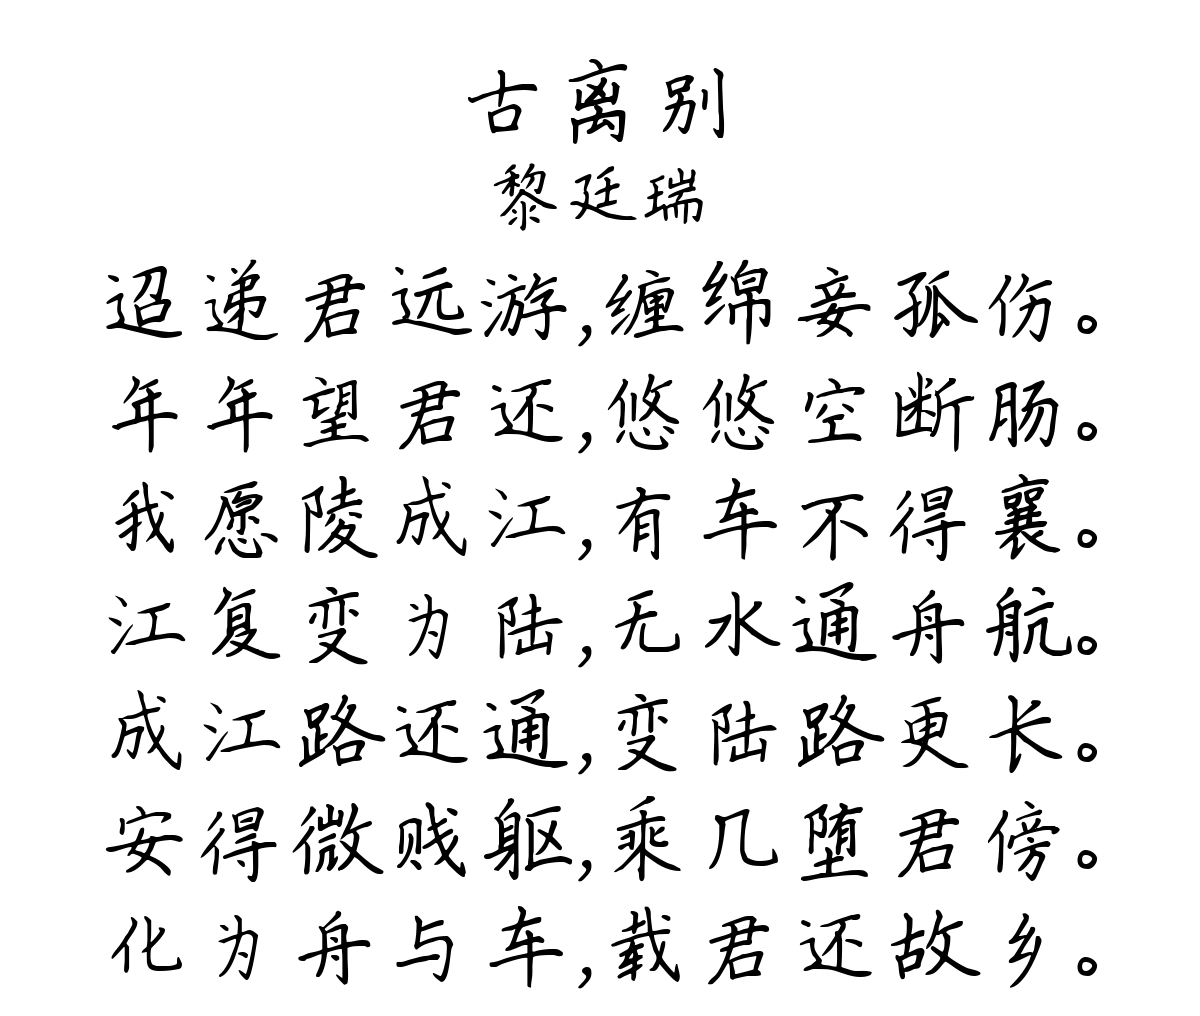 古离别
黎廷瑞
迢递君远游,缠绵妾孤伤。
年年望君还,悠悠空断肠。
我愿陵成江,有车不得襄。
江复变为陆,无水通舟航。
成江路还通,变陆路更长。
安得微贱躯,乘几堕君傍。
化为舟与车,载君还故乡。